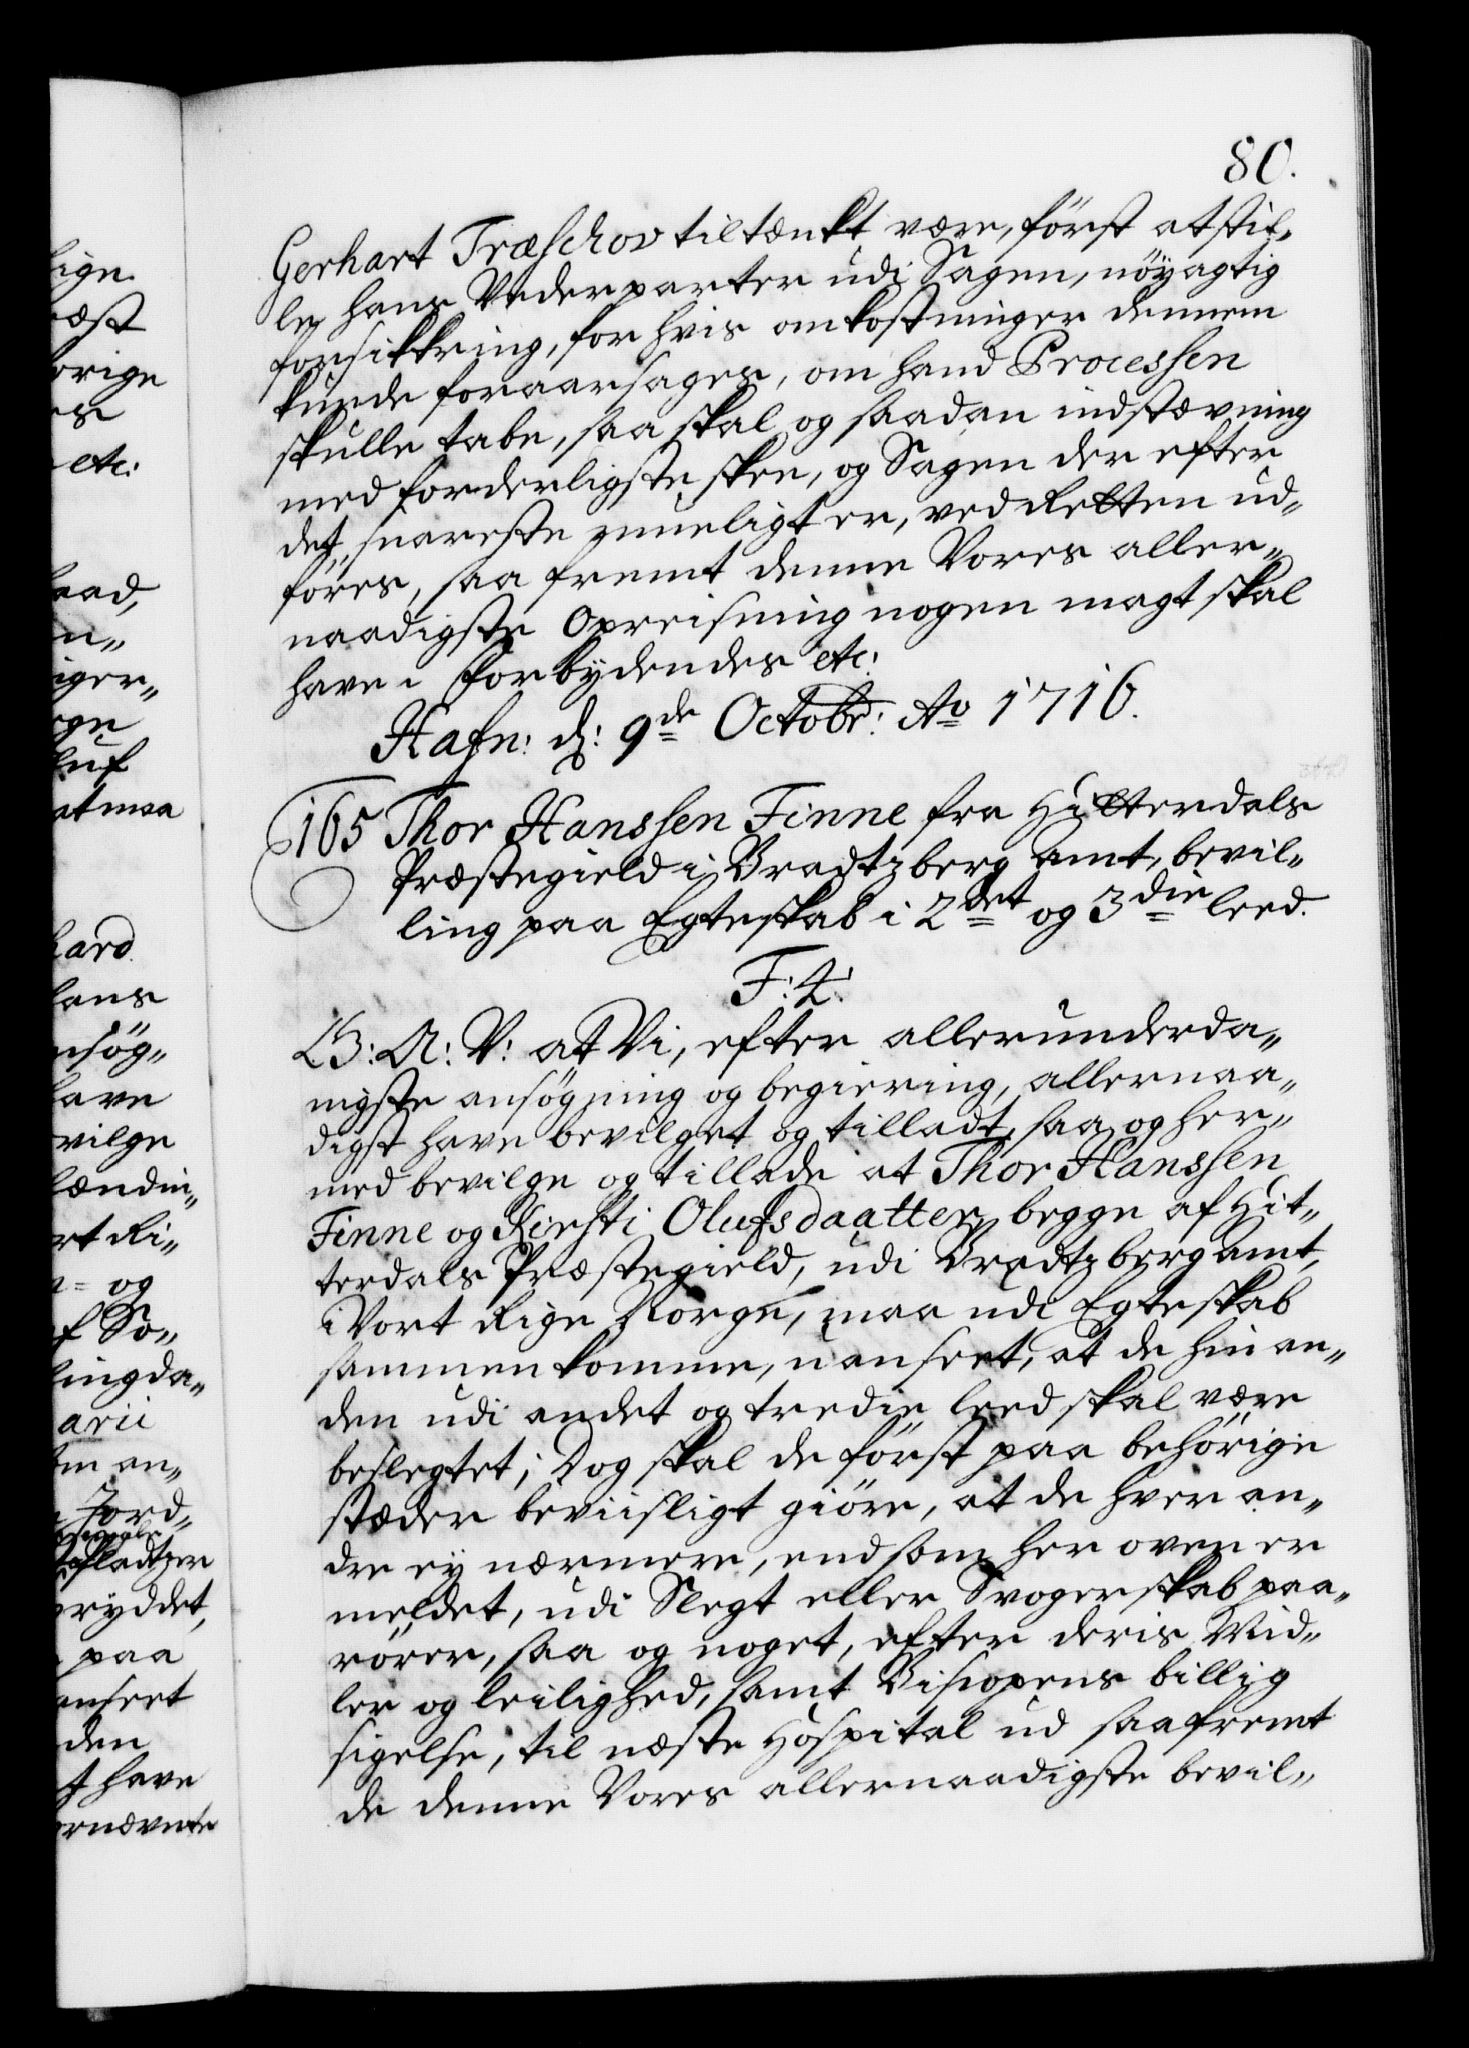 80.
Gerhart Træschov tiltænkt være, först at stil„
le hans Vederparter udi Sagen, nöyagtig
forsikkring, for hvis omkostninger dennem
kunde foraarsages, om hand Processen
skulle tabe, saa skal og saadan indstævning
med forderligste skee, og Sagen der efter
det snareste mueligt er, ved Retten ud„
föres, saa fremt denne Vores aller„
naadigste Opreisning nogen magt skal
have. Forbydendes etc:
Hafn: d: 9de Octobr: Ao 1716.
165 Thor Hanssen Finne fra Hitterdals
Præstegield i Bradtzberg Amt, bevil„
ling paa Egteskab i 2det og 3die leed.
F: 4:
G: A: V: at Vi, efter allerunderda„
nigste ansögning og begiering, allernaa„
digst have bevilget og tilladt, saa og her„
med bevilge og tillade at Thor Hanssen
Finne og Kirsti Olufsdaatter begge af Hit„
terdals Præstegield, udi Bradtzberg Amt,
i Vort Rige Norge, maa udi Egteskab
sammenkomme, uanseet, at de hin an„
den udi andet og tredie leed skal være
beslegtet; Dog skal de först paa behörige
stæder beviisligt giöre, at de hver an„
dre ey nærmere, end som her oven er
meldet, udi Slegt eller Svogerskab paa„
rörer, saa og noget, efter deris Mid„
ler og leilighed, samt Biscopens billig
sigelse, til næste Hospital ud saafremt
de denne Vores allernaadigste bevil„